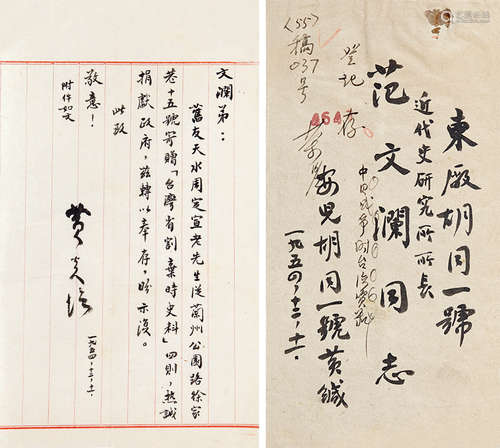 文瀾弟：
舊友天水周定宣老先生從蘭州公園路徐家
巷十五號寄贈「台灣省割棄時史料」四則，熱誠
捐獻政府，茲轉以奉存，盼示復。
此致
敬意！
附件如文
黃炎培
一九五四，十二，十一
東廠胡同一號
近代史研究所所長
范文瀾同志
登记
存
〈55〉稿037号
464
安兒胡同一號黃緘
一九五四，十二，十一